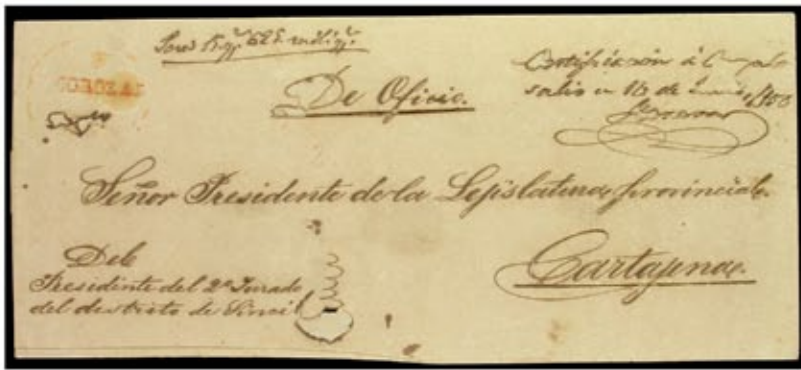 COROZAL
De Oficio.
Certificacion á
salio en 16 de 1850
Señor Presidente de la Lejislatura provincial.
Cartajena.
Del
Presidente del 2º Jurado
del distrito de Sincé